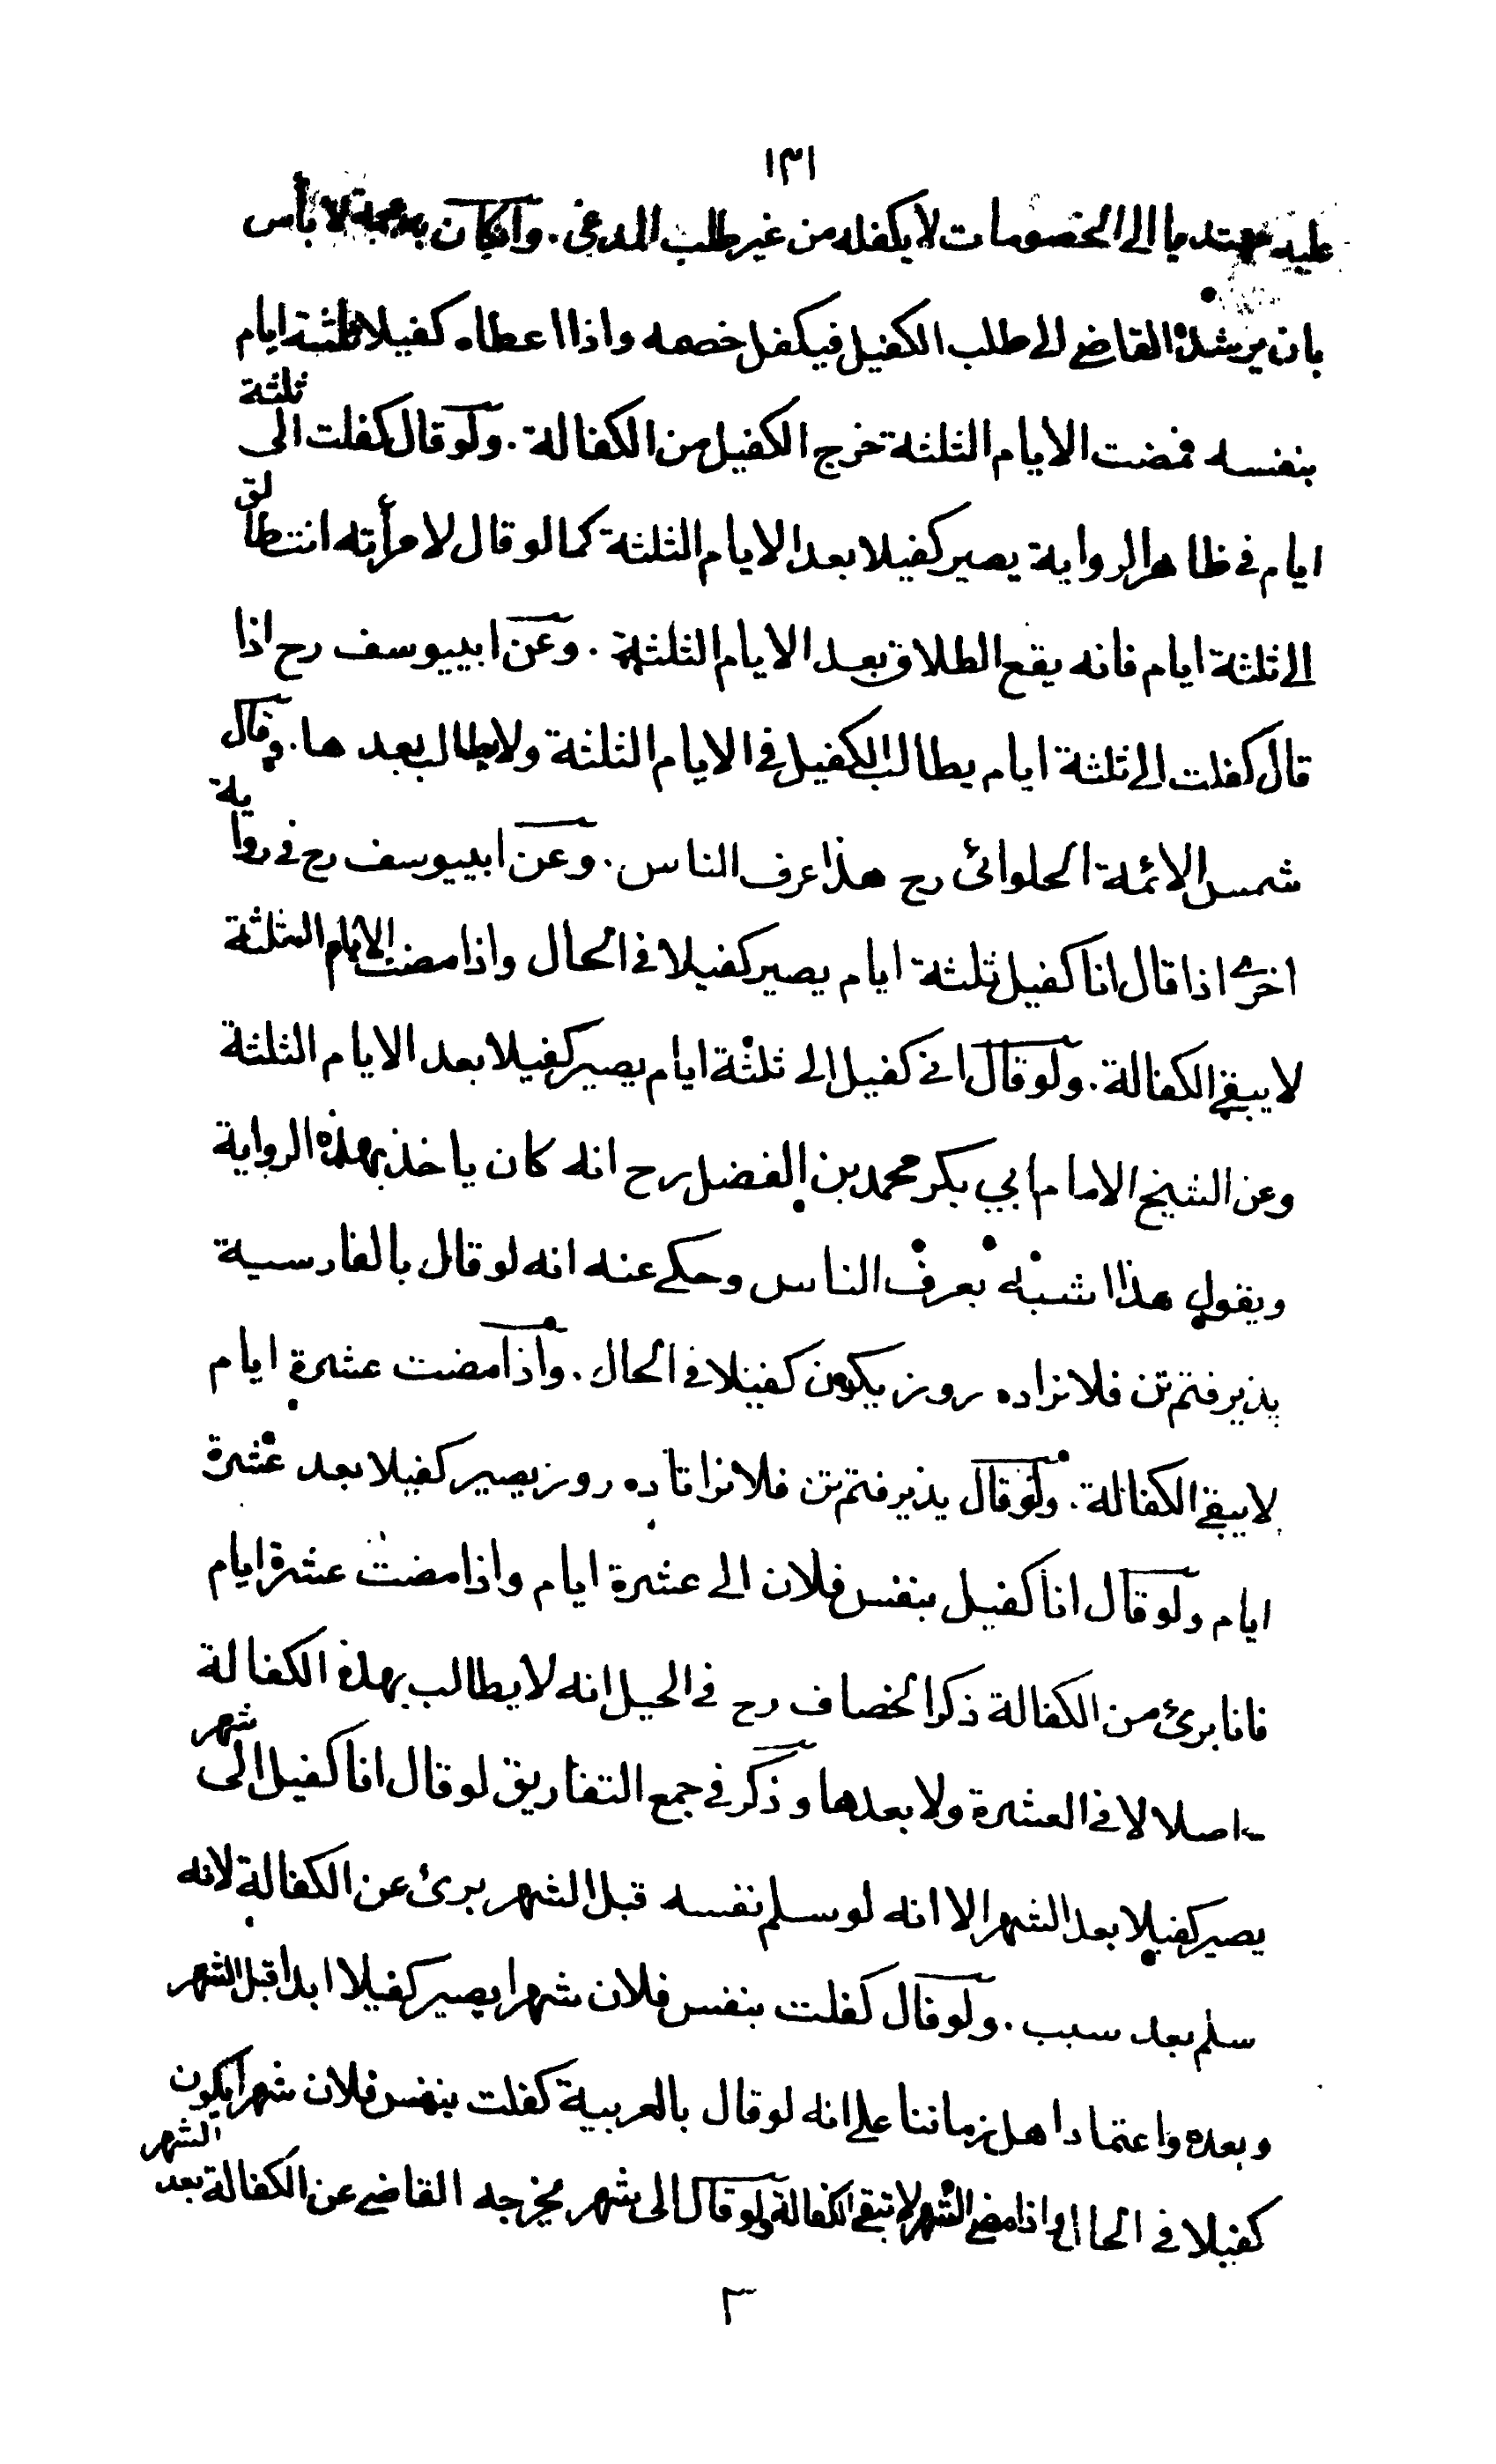 ١٣١
عليه مهتديا الى الخصومات لا يكفله من غير طلب المدعى . وان كان به لا بأس
بان يرشده القاضى الى طلب الكفيل فيكفل خصمه واذا اعطاه كفيلا ثلثة ايام
بنفسه فمضت الايام الثلثة خرج الكفيل من الكفالة . ولو قال كفلت الى ثلثة
ايام فى ظاهر الرواية يصير كفيلا بعد الايام الثلثة كما لو قال لامرأته انت طالق
الى ثلثة ايام فانه يقع الطلاق بعد الايام الثلثة . وعن ابييوسف رح اذا
قال كفلت الى ثلثة ايام يطالب الكفيل فى الايام الثلثة ولا يطالب بعدها . وقال
شمس الائمة الحلوائى رح هذا عرف الناس . وعن ابييوسف رح فى رواية
اخرى اذا قال انا كفيل ثلثة ايام يصير كفيلا فى الحال واذا مضت الايام الثلثة
لا يبقى الكفالة . ولو قال انى كفيل الى ثلثة ايام يصير كفيلا بعد الايام الثلثة
وعن الشيخ الامام ابي بكر محمد بن الفضل رح انه كان ياخذ بهذه الرواية
ويقول هذا اشبه بعرف الناس وحكى عنه انه لو قال بالفارسية
پذيرفتم تن فلانرا ده روز يكون كفيلا فى الحال . واذا مضت عشرة ايام
لا يبقى الكفالة . ولو قال پذيرفتم تن فلانرا تا ده روز يصير كفيلا بعد عشرة
ايام ولو قال انا كفيل بنفس فلان الى عشرة ايام واذا مضت عشرة ايام
فانا برئ من الكفالة ذكر الخصاف رح فى الحيل انه لا يطالب بهذه الكفالة
اصلا لا فى العشرة ولا بعدها وذكر فى جمع التفاريق لو قال انا كفيل الى شهر
يصير كفيلا بعد الشهر الا انه لو سلم نفسه قبل الشهر برئ عن الكفالة لانه
سلم بعد سبب . ولو قال كفلت بنفس فلان شهرا يصير كفيلا ابدا قبل الشهر
وبعده واعتماد اهل زماننا على انه لو قال بالعربية كفلت بنفس فلان شهرا يكون
كفيلا فى الحال واذا مضى الشهر لا تبقى الكفالة ولو قال الى شهر يخرجه القاضى عن الكفالة بعد الشهر
٣